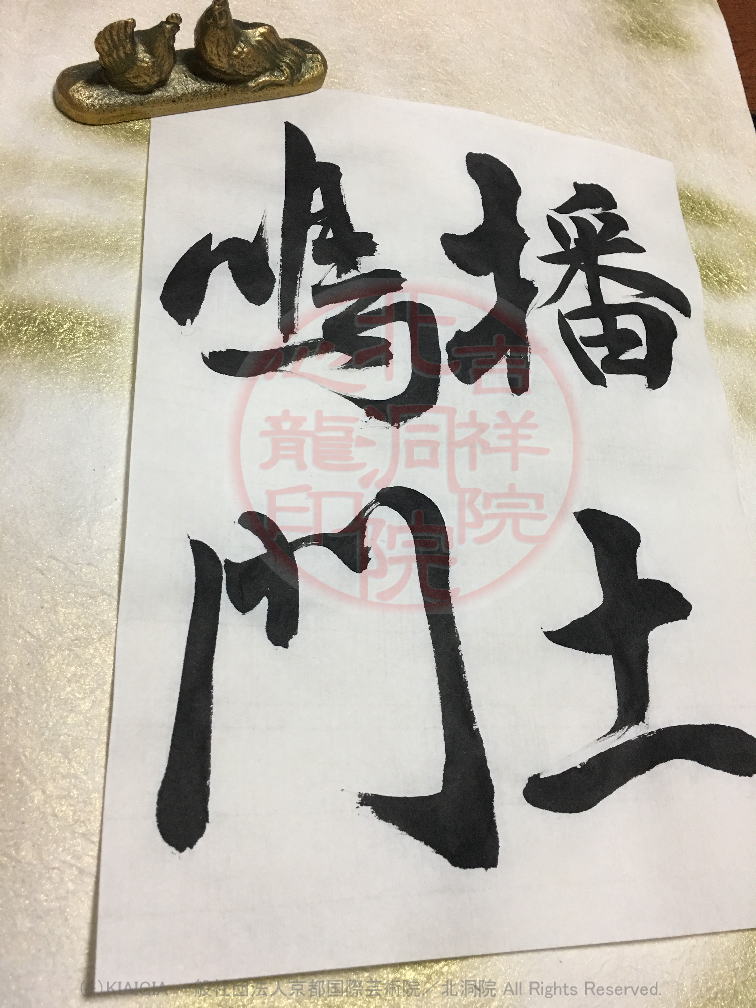 播土
鳴門
北洞院
吉祥院
龍印
(C)KIAIGIA 一般社団法人京都国際芸術院／北洞院 All Rights Reserved.